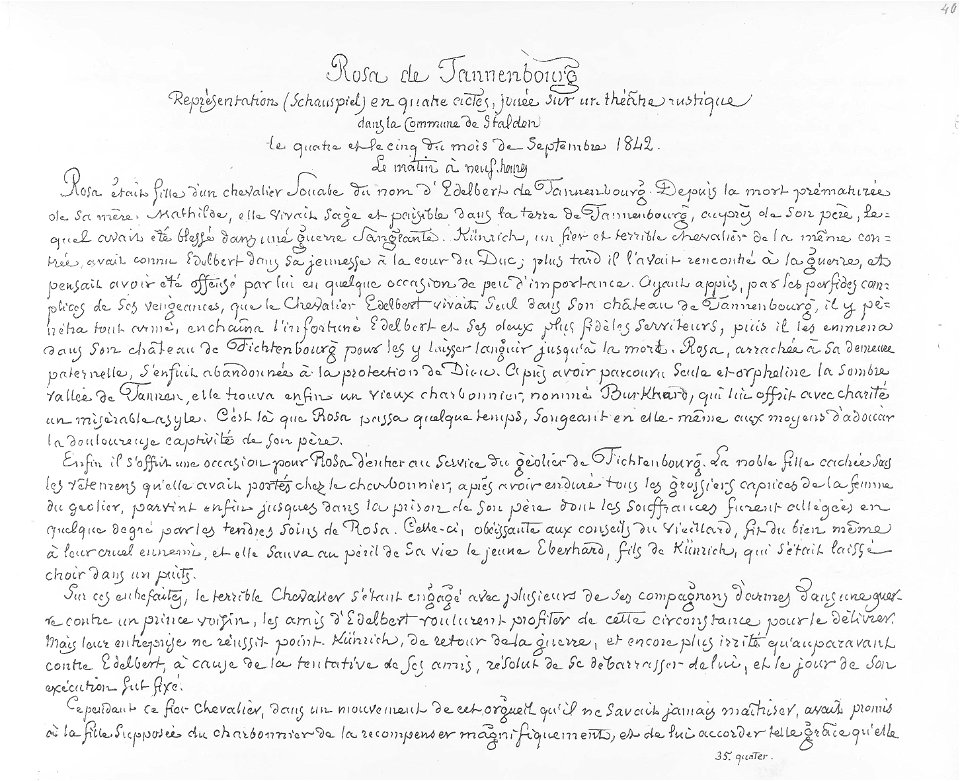 40
Rosa de Tannenbourg
Représentation (Schauspiel) en quatre actes, jouée sur un théâtre rustique
dans la Commune de Stalden
le quatre et le cinq du mois de Septembre 1842.
Le matin à neuf heures
Rosa était fille d'un chevalier Souabe du nom d'Edelbert de Tannenbourg. Depuis la mort prématurée
de sa mère, Mathilde, elle vivait sage et paisible dans la terre de Tannenbourg, auprès de son père, le=
quel avait été blessé dans une guerre sanglante. Künrich, un fier et terrible chevalier de la même con=
trée, avait connu Edelbert dans sa jeunesse à la cour du Duc; plus tard il l'avait rencontré à la guerre, et
pensait avoir été offensé par lui en quelque occasion de peu d'importance. Ayant appris, par les perfides com=
plices de ses vengeances, que le Chevalier Edelbert vivait seul dans son château de Tannenbourg, il y pé=
nétra tout armé, enchaîna l'infortuné Edelbert et ses deux plus fidèles serviteurs, puis il les emmena
dans son château de Fichtenbourg pour les y laisser languir jusqu'à la mort. Rosa, arrachée à sa demeure
paternelle, s'enfuit abandonnée à la protection de Dieu. Après avoir parcouru seule et orpheline la sombre
vallée de Tannen, elle trouva enfin un vieux charbonnier, nommé Burkhard, qui lui offrit avec charité
un misérable asyle. C'est là que Rosa passa quelque temps, songeant en elle-même aux moyens d'adoucir
la douloureuse captivité de son père.
Enfin il s'offrit une occasion pour Rosa d'entrer au service du geôlier de Fichtenbourg. La noble fille cachée sous
les vêtemens qu'elle avait portés chez le charbonnier, après avoir enduré tous les grossiers caprices de la femme
du geolier, parvint enfin jusques dans la prison de son père dont les souffrances furent allégées en
quelque degré par les tendres soins de Rosa. Celle-ci, obéissante aux conseils du vieillard, fit du bien même
à leur cruel ennemi, et elle sauva au péril de sa vie le jeune Eberhard, fils de Künrich, qui s'était laissé
choir dans un puits.
Sur ces entrefaites, le terrible Chevalier s'étant engagé avec plusieurs de ses compagnons d'armes dans une guer-
re contre un prince voisin, les amis d'Edelbert voulurent profiter de cette circonstance pour le délivrer.
Mais leur entreprise ne réussit point. Künrich, de retour de la guerre, et encore plus irrité qu'auparavant
contre Edelbert, à cause de la tentative de ses amis, résolut de se débarrasser de lui, et le jour de son
exécution fut fixé.
Cependant ce fier Chevalier, dans un mouvement de cet orgueil qu'il ne savait jamais maîtriser, avait promis
à la fille supposée du charbonnier de la récompenser magnifiquement, et de lui accorder telle grâce qu'elle
35. quater.